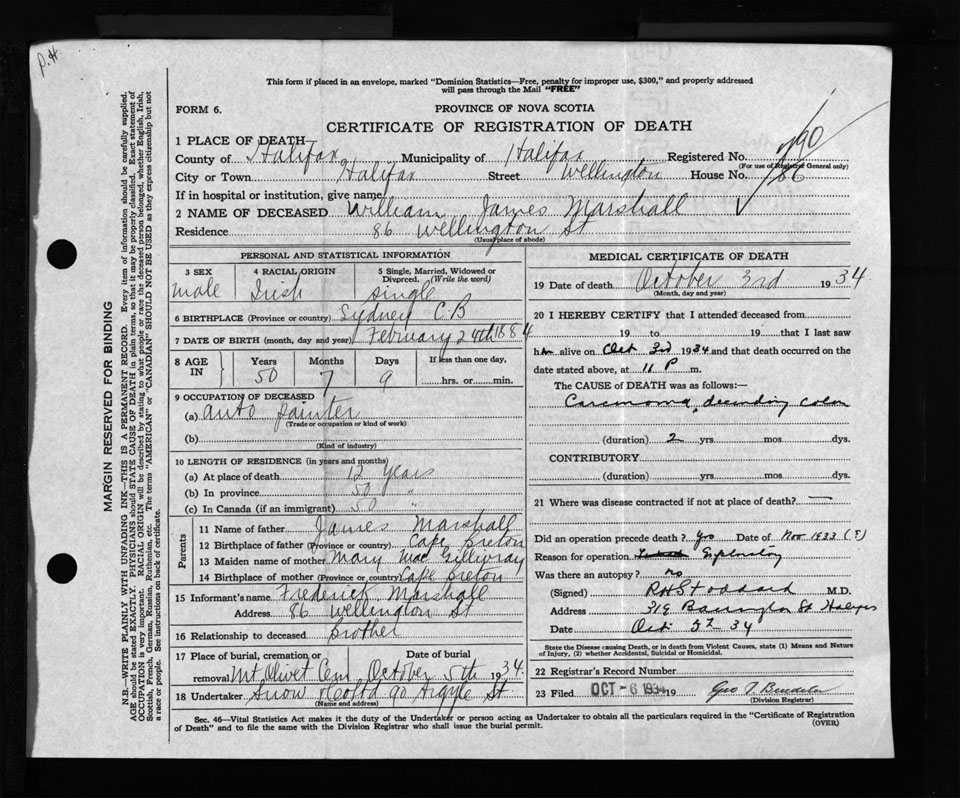 P.H.
This form if placed in an envelope, marked "Dominion Statistics—Free, penalty for improper use, $300," and properly addressed
will pass through the Mail "FREE"
FORM 6.
PROVINCE OF NOVA SCOTIA
CERTIFICATE OF REGISTRATION OF DEATH
1 PLACE OF DEATH
County of Halifax Municipality of Halifax Registered No.
(For use of Registrar General only)
City or Town Halifax Street Wellington House No. 86
If in hospital or institution, give name
2 NAME OF DECEASED William James Marshall
Residence 86 Wellington St
(Usual place of abode)
PERSONAL AND STATISTICAL INFORMATION
3 SEX 4 RACIAL ORIGIN 5 Single, Married, Widowed or Divorced. (Write the word)
male Irish single
6 BIRTHPLACE (Province or country) Sydney C.B
7 DATE OF BIRTH (month, day and year) February 24th 1884
8 AGE IN Years Months Days If less than one day,
50 7 9 hrs. or min.
9 OCCUPATION OF DECEASED
(a) auto painter
(Trade or occupation or kind of work)
(b)
(Kind of industry)
10 LENGTH OF RESIDENCE (in years and months)
(a) At place of death 12 years
(b) In province 50 "
(c) In Canada (if an immigrant) 50 "
Parents
11 Name of father James Marshall
12 Birthplace of father (Province or country) Cape Breton
13 Maiden name of mother Mary MacGillivray
14 Birthplace of mother (Province or country) Cape Breton
15 Informant's name Frederick Marshall
Address 86 Wellington St
16 Relationship to deceased brother
17 Place of burial, cremation, or removal Date of burial
Mt Olivet Cem October 5th 1934.
18 Undertaker Snow & Co Ltd 90 Argyle St.
(Name and address)
MEDICAL CERTIFICATE OF DEATH
19 Date of death October 3rd 1934
(Month, day and year)
20 I HEREBY CERTIFY that I attended deceased from
19 to 19 that I last saw
him alive on Oct 3rd 1934 and that death occurred on the
date stated above, at 11 P m.
The CAUSE of DEATH was as follows:—
Carcinoma, decending colon
(duration) 2 yrs mos dys.
CONTRIBUTORY
(duration) yrs mos dys.
21 Where was disease contracted if not at place of death? —
Did an operation precede death? yes Date of Nov 1933 (?)
Reason for operation. Exploratory
Was there an autopsy? no
(Signed) R H Stoddard M.D.
Address 319 Barrington St Halifax
Date Oct 5th 34
State the Disease causing Death, or in death from Violent Causes, state (1) Means and Nature
of Injury, (2) whether Accidental, Suicidal or Homicidal.
22 Registrar's Record Number
23 Filed OCT - 6 1934 19
(Division Registrar)
Sec. 46—Vital Statistics Act makes it the duty of the Undertaker or person acting as Undertaker to obtain all the particulars required in the "Certificate of Registration
of Death" and to file the same with the Division Registrar who shall issue the burial permit.
(OVER)
MARGIN RESERVED FOR BINDING
N.B.—WRITE PLAINLY WITH UNFADING INK—THIS IS A PERMANENT RECORD. Every item of information should be carefully supplied.
AGE should be stated EXACTLY. PHYSICIANS should STATE CAUSE OF DEATH in plain terms, so that it may be properly classified. Exact statement of
OCCUPATION is very important. RACIAL ORIGIN will be described by stating to what people or race the deceased person belonged, whether English, Irish,
Scottish, French, German, Russian, Ruthenian, etc. The terms "AMERICAN" or "CANADIAN" SHOULD NOT BE USED as they express citizenship but not
a race or people. See instructions on back of certificate.